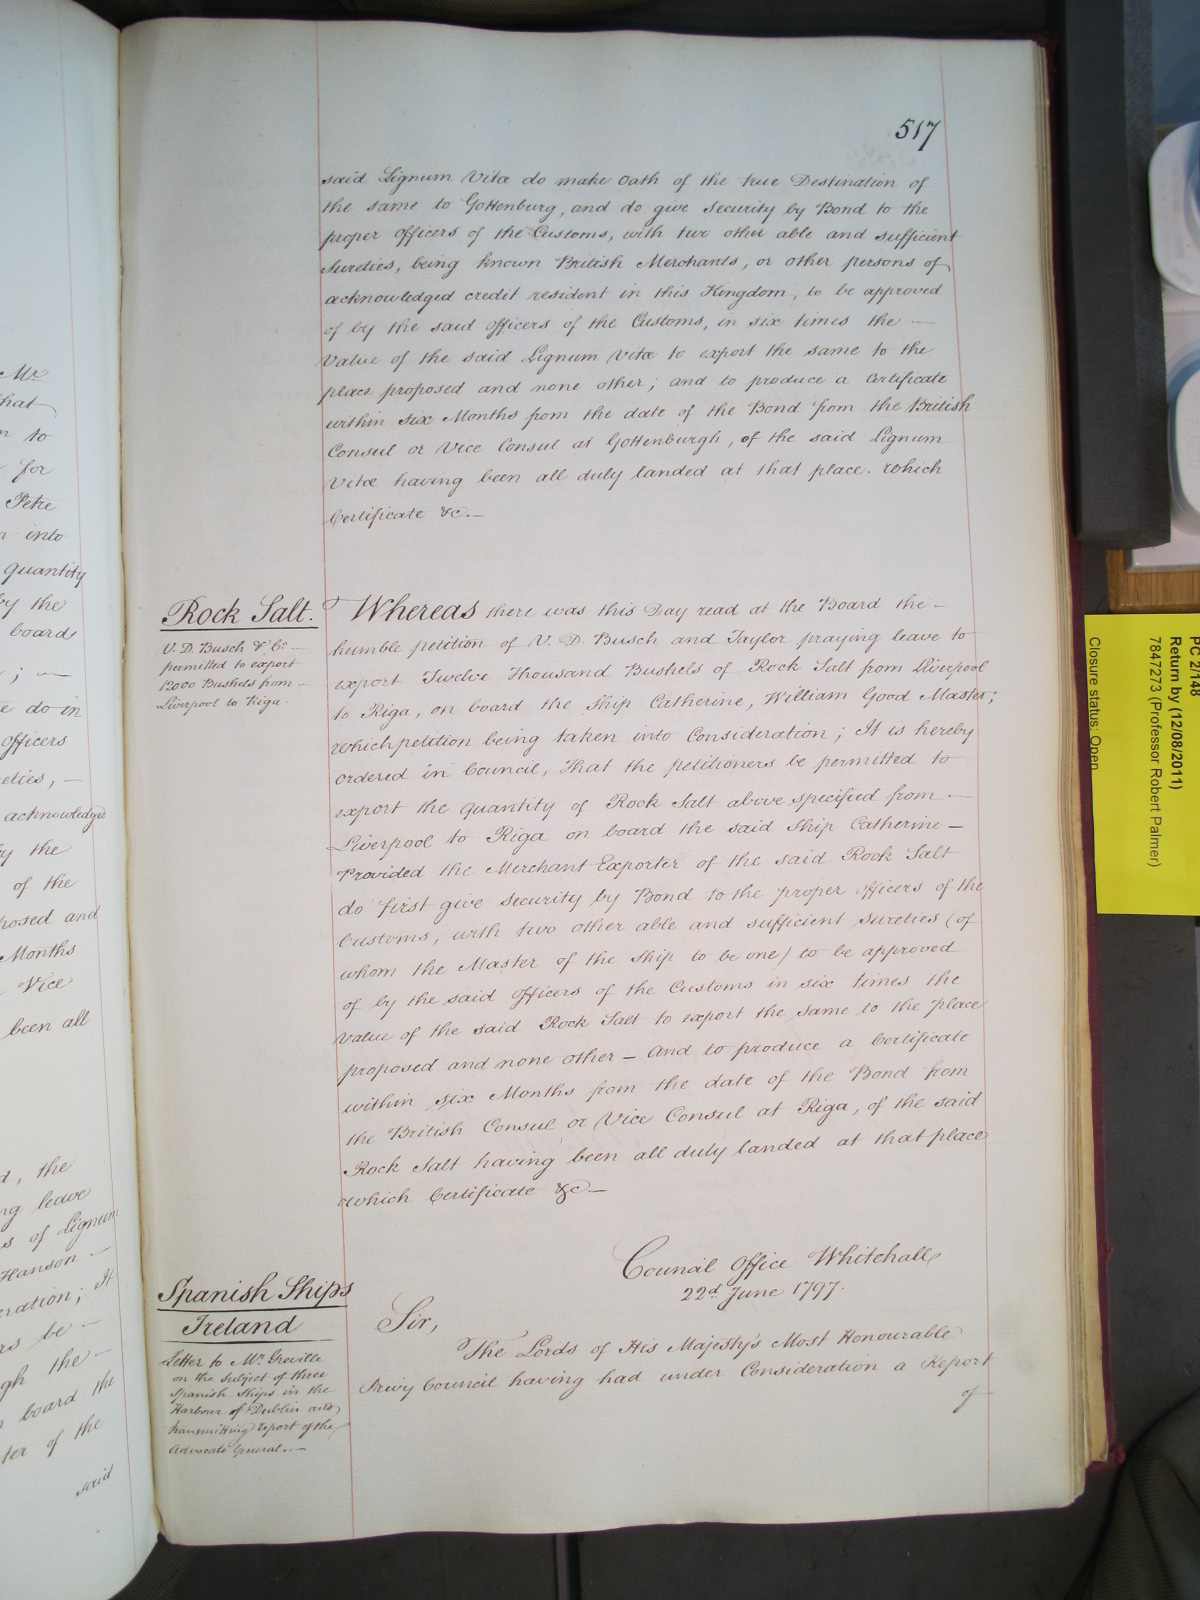 517
said Lignum Vitæ do make Oath of the true Destination of
the same to Gottenburg, and do give security by Bond to the
proper officers of the Customs, with two other able and sufficient
Sureties, being known British Merchants, or other persons of
acknowledged credit resident in this Kingdom, to be approved
of by the said officers of the Customs, in six times the —
Value of the said Lignum Vitæ to export the same to the
place proposed and none other; and to produce a Certificate
within six Months from the date of the Bond from the British
Consul or Vice Consul at Gottenburgh, of the said Lignum
Vitæ having been all duly landed at that place. Which
Certificate &c.—
Rock Salt.
V. D. Busch & Co. —
permitted to export
12000 Bushels from —
Liverpool to Riga.
Whereas there was this Day read at the Board the —
humble petition of V. D. Busch and Taylor praying leave to
export Twelve Thousand Bushels of Rock Salt from Liverpool
to Riga, on board the Ship Catherine, William Good Master;
which petition being taken into Consideration; It is hereby
ordered in Council, That the petitioners be permitted to
export the quantity of Rock Salt above specified from —
Liverpool to Riga on board the said Ship Catherine —
Provided the Merchant Exporter of the said Rock Salt
do first give security by Bond to the proper officers of the
Customs, with two other able and sufficient sureties (of
whom the Master of the Ship to be one) to be approved
of by the said Officers of the Customs in six times the
Value of the said Rock Salt to export the same to the place
proposed and none other — And to produce a Certificate
within six Months from the date of the Bond from
the British Consul or Vice Consul at Riga, of the said
Rock Salt having been all duly landed at that place
which Certificate &c—
Council Office Whitehall
22d June 1797.
Spanish Ships
Ireland
Letter to Mr. Greville
on the subject of three
Spanish Ships in the
Harbour of Dublin and
transmitting report of the
Advocate General.—
Sir,
The Lords of His Majesty's Most Honourable
Privy Council having had under Consideration a Report
of
Mr.
that
to
for
Petre
into
quantity
by the
board
; —
do in
officers
—
acknowledged
by the
of the
and
Months
Vice
been all
, the
leave
of Lignum
Hanson —
; It
be —
the —
board the
of the
said
PC 2/148
Return by (12/08/2011)
7847273 (Professor Robert Palmer)
Closure status: Open